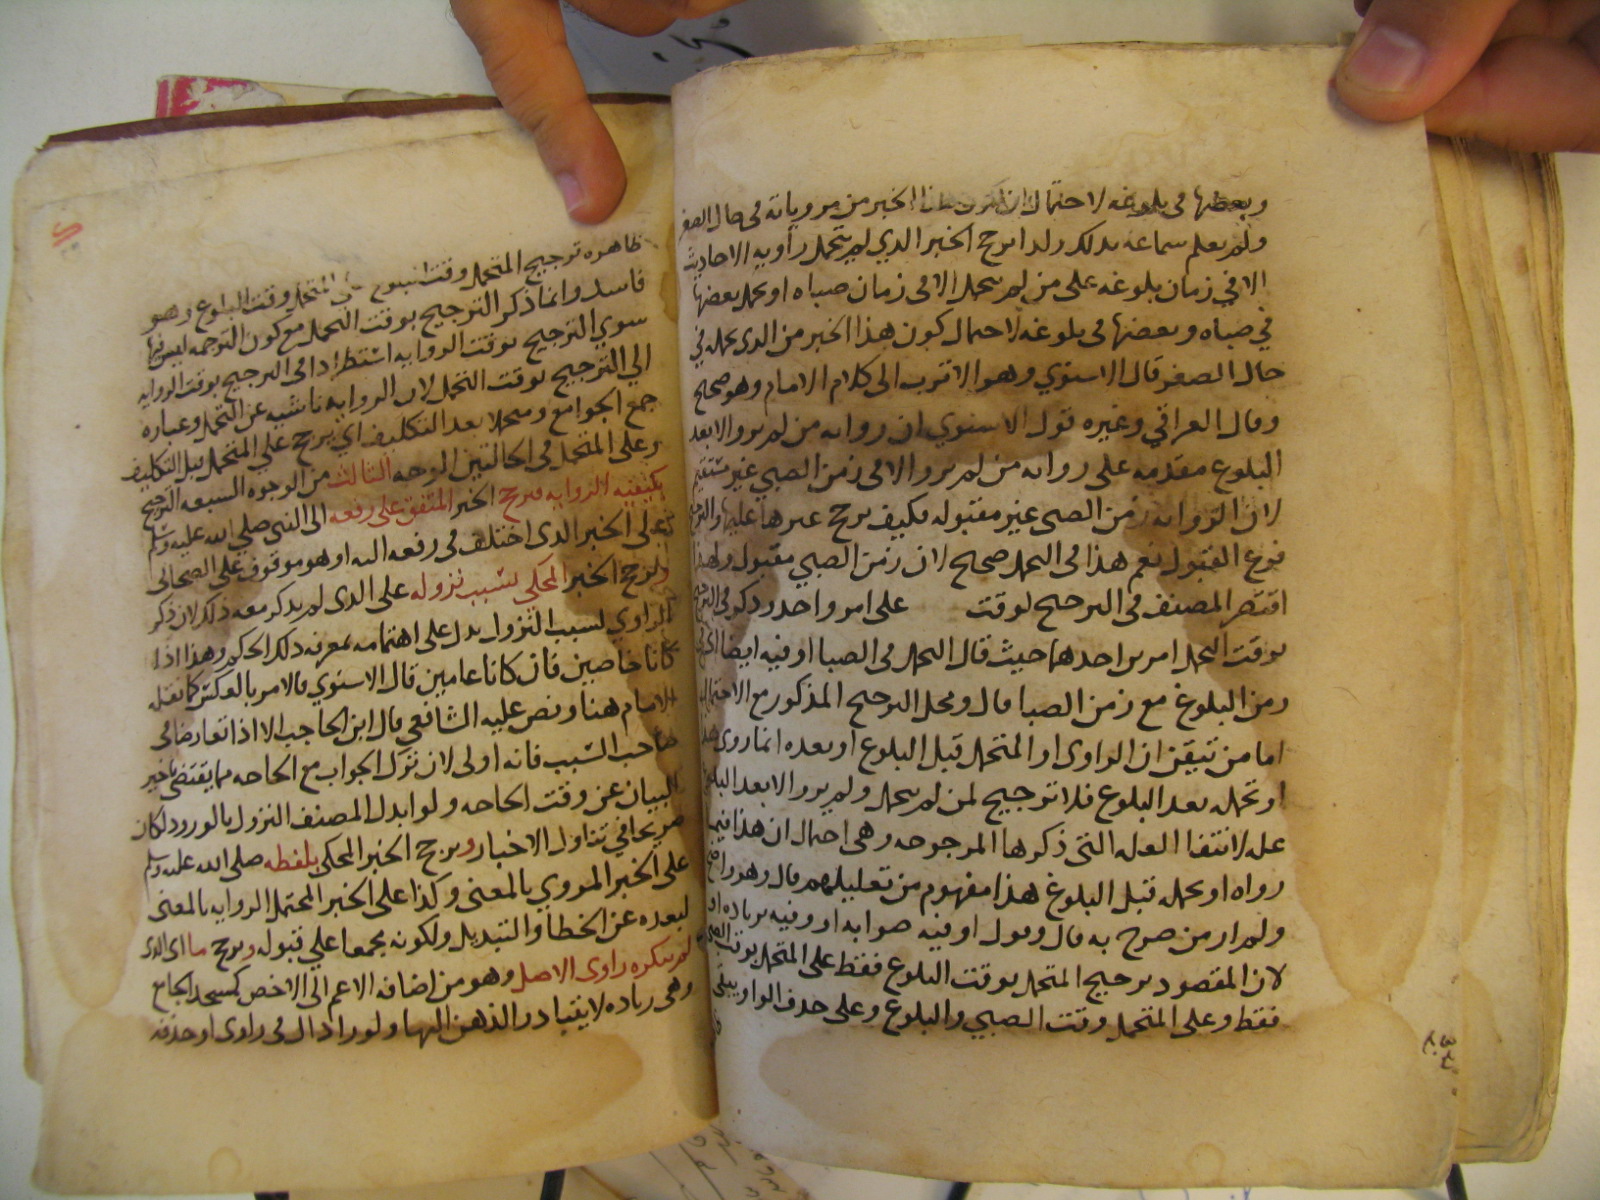 وبعضها في بلوغه لاحتمال ان يكون هذا الخبر من مروياته في حال الصغر
ولم يعلم سماعه بذلك ولذا يرجح الخبر الذي لم يتحمل راويه الاحاديث
الا في زمان بلوغه على من لم يتحمل الا في زمان صباه او تحمل بعضها
في صباه وبعضها في بلوغه لاحتمال كون هذا الخبر من الذي تحمله في
حال الصغر قال الاسنوي وهو الاقرب الى كلام الامام وهو صحيح
وقال العراقي وغيره قول الاسنوي ان روايه من لم يرو الا بعد
البلوغ مقدمه على روايه من لم يرو الا في زمن الصبي غير مستقيم
لان الروايه زمن الصبي غير مقبوله فكيف يرجح غيرها عليها والترجيح
فرع القبول نعم هذا في التحمل صحيح لان زمن الصبي مقبول ولهذا
اقتصر المصنف في الترجيح لوقت على امر واحد وذكر في الترجيح
بوقت التحمل امرين احدهما حيث قال التحمل في الصبا او فيه ايضا
زمن البلوغ مع زمن الصبا قال ومحل الترجيح المذكور مع الاحتمال
اما من تيقن ان الراوي او المتحمل قبل البلوغ او بعده انما روى هذا
او تحمله بعد البلوغ فلا ترجيح لمن لم يتحمل ولم يرو الا بعد البلوغ
عليه لانتفا العله التي ذكرها المرجوحه وهي احتمال ان هذا فيما
رواه او تحمله قبل البلوغ هذا مفهوم من تعليلهم قال وهو واضح
ولم ار من صرح به قال وقول او فيه صوابه او وفيه بزياده واو
لان المقصود ترجيح المتحمل بوقت البلوغ فقط على المتحمل بوقت الصبي
فقط وعلى المتحمل وقت الصبي والبلوغ وعلى حذف الواو يبقى
ظاهره ترجيح المتحمل وقت البلوغ على المتحمل وقت البلوغ وهو
فاسد وانما ذكر الترجيح بوقت التحمل مع كون الترجمه ليس فيها
سوي الترجيح بوقت الروايه استطرادا في الترجيح بوقت الروايه
الي الترجيح بوقت التحمل لان الروايه ناشيه عن التحمل وعباره
جمع الجوامع ومتحملا بعد التكليف اي يرجح علي المتحمل قبل التكليف
وعلى المتحمل في الحالتين الوجه الثالث من الوجوه السبعه الترجيح
بكيفيه الروايه فيرجح الخبر المتفق على رفعه الى النبي صلى الله عليه وسلم
على الخبر الذي اختلف في رفعه اليه او هو موقوف على الصحابي
ويرجح الخبر المحكي لسبب نزوله على الذي لم يذكر معه ذلك لان ذكر
الراوي لسبب النزول يدل على اهتمامه بمعرفه ذلك الحكم وهذا اذا
كانا خاصين فان كانا عامين قال الاسنوي فالامر بالعكس كما نقله
الامام هنا ونص عليه الشافعي قال ابن الحاجب الا اذا تعارضا في
صاحب السبب فانه اولى لان ترك الجواب مع الحاجه مما يقتضي تاخير
البيان عن وقت الحاجه ولو ابدل المصنف النزول بالورود لكان
صريحا في تناول الاخبار ويرجح الخبر المحكي بلفظه صلى الله عليه وسلم
على الخبر المروي بالمعنى وكذا على الخبر المحتمل الروايه بالمعنى
لبعده عن الخطأ والتبديل ولكونه مجمعا علي قبوله ويرجح ما اي الذي
لم ينكره راوى الاصل وهو من اضافه الاعم الى الاخص كمسجد الجامع
وهي زياده لا يتبادر الذهن اليها ولو زاد ال في راوى او حذفه